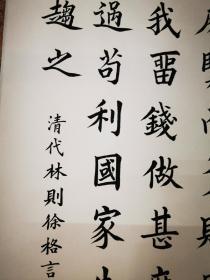 我畱錢做甚
過苟利國家生
趨之
清代林則徐格言